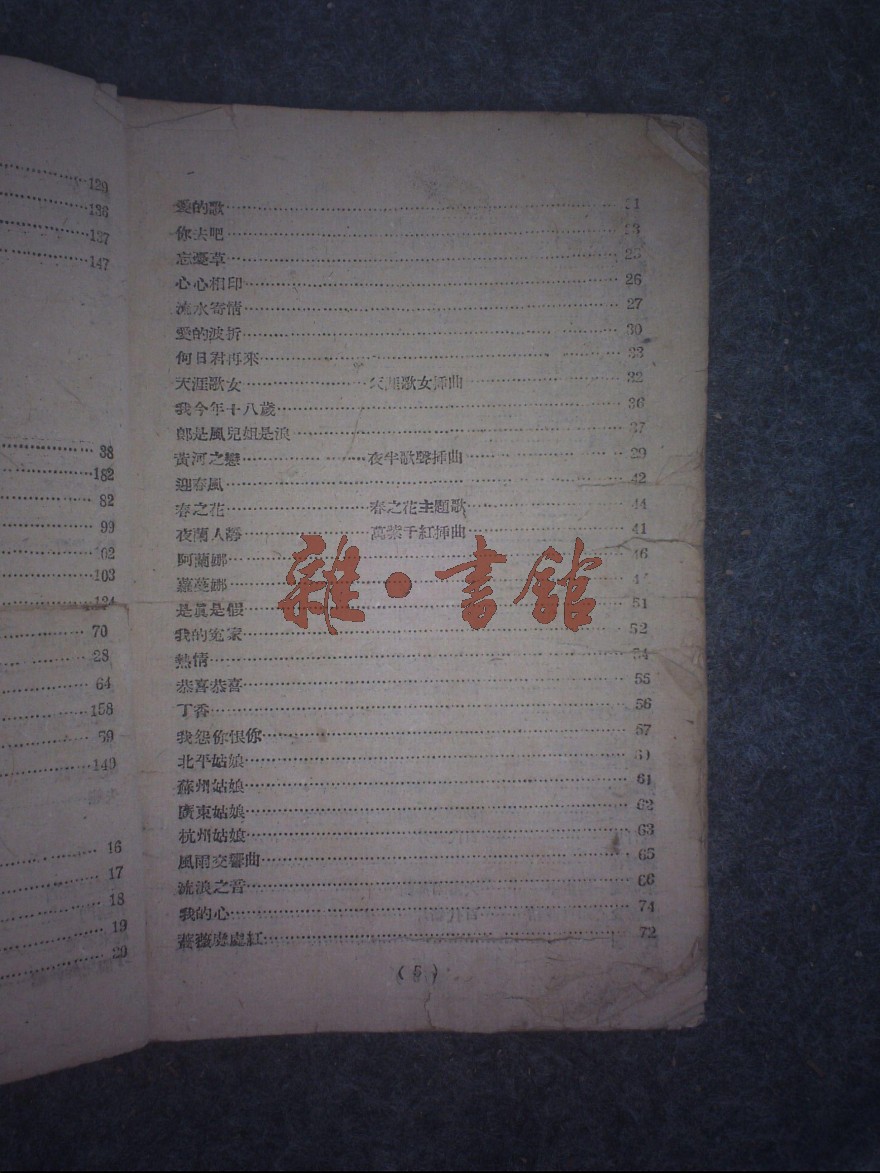 129
136
137
147
38
182
82
99
102
103
134
70
28
64
158
59
149
16
17
18
19
20
愛的歌 21
你去吧 23
忘憂草 25
心心相印 26
流水寄情 27
愛的波折 30
何日君再來 33
天涯歌女 天涯歌女插曲 32
我今年十八歲 36
郞是風兒姐是浪 37
黃河之戀 夜半歌聲插曲 29
迎春風 42
春之花 春之花主題歌 44
夜闌人靜 萬紫千紅插曲 41
阿蘭娜 46
嘉蘭娜
是眞是假 51
我的冤家 52
熱情 54
恭喜恭喜 55
丁香 56
我怨你恨你 57
北平姑娘 60
蘇州姑娘 61
廣東姑娘 62
杭州姑娘 63
風雨交響曲 65
流浪之音 66
我的心 74
薔薇處處紅 72
(5)
雜·書館